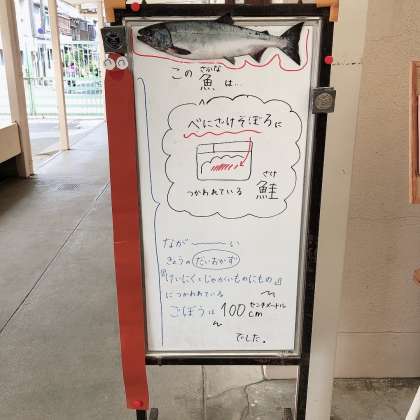 この魚は…
さかな
べにざけそぼろに
つかわれている
さけ
鮭
ながーーい
きょうの だいおかず
『けいにくとじゃがいものにもの』
につかわれている
ごぼうは 100cm
センチメートル
でした。